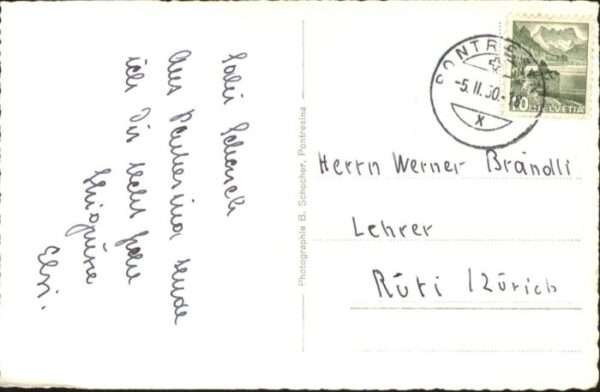 Salü Schorsch
Aus Pontresina sende
ich Dir recht frohe
Skigrüsse
Elsi.
Photographie B. Schocher, Pontresina
PONTRESINA
-5.II.50.-
X
10 HELVETIA
Herrn Werner Brändli
Lehrer
Rüti / Zürich